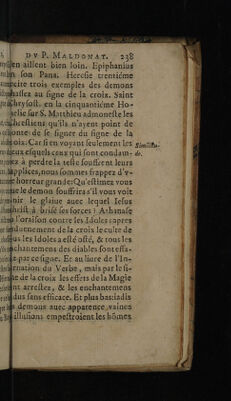 DV P. MALDONAT. 238
en aillent bien loin. Epiphanius
en son Pana. Heresie trentiéme
recite trois exemples des demons
chassez au signe de la croix. Saint
Chrysost. en la cinquantiéme Ho-
melie sur S. Matthieu admoneste les
qu'ils n'ayent point de
honte de se signer du signe de la
croix. Car si en voyant seulement les
Similitu-
de.
lieux esquels ceux qui sont condam-
nez à perdre la teste souffrent leurs
supplices, nous sommes frappez d'v-
ne horreur grande: Qu'estimez vous
que le demon souffrira s'il vous voit
tenir le glaiue auec lequel Iesus
Christ à brisé ses forces? Athanase
en l'oraison contre les Idoles
du
tous les Idoles a esté osté, & tous les
enchantemens des diables sont effa-
cez par ce signe. Et au liure de l'In-
carnation du Verbe, mais par le si-
gne de la croix les effets de la Magie
sont arrestez, & les enchantemens
rendus sans efficace. Et plus bas iadis
les demons auec apparence vaines
illusions empestroient les hõmes